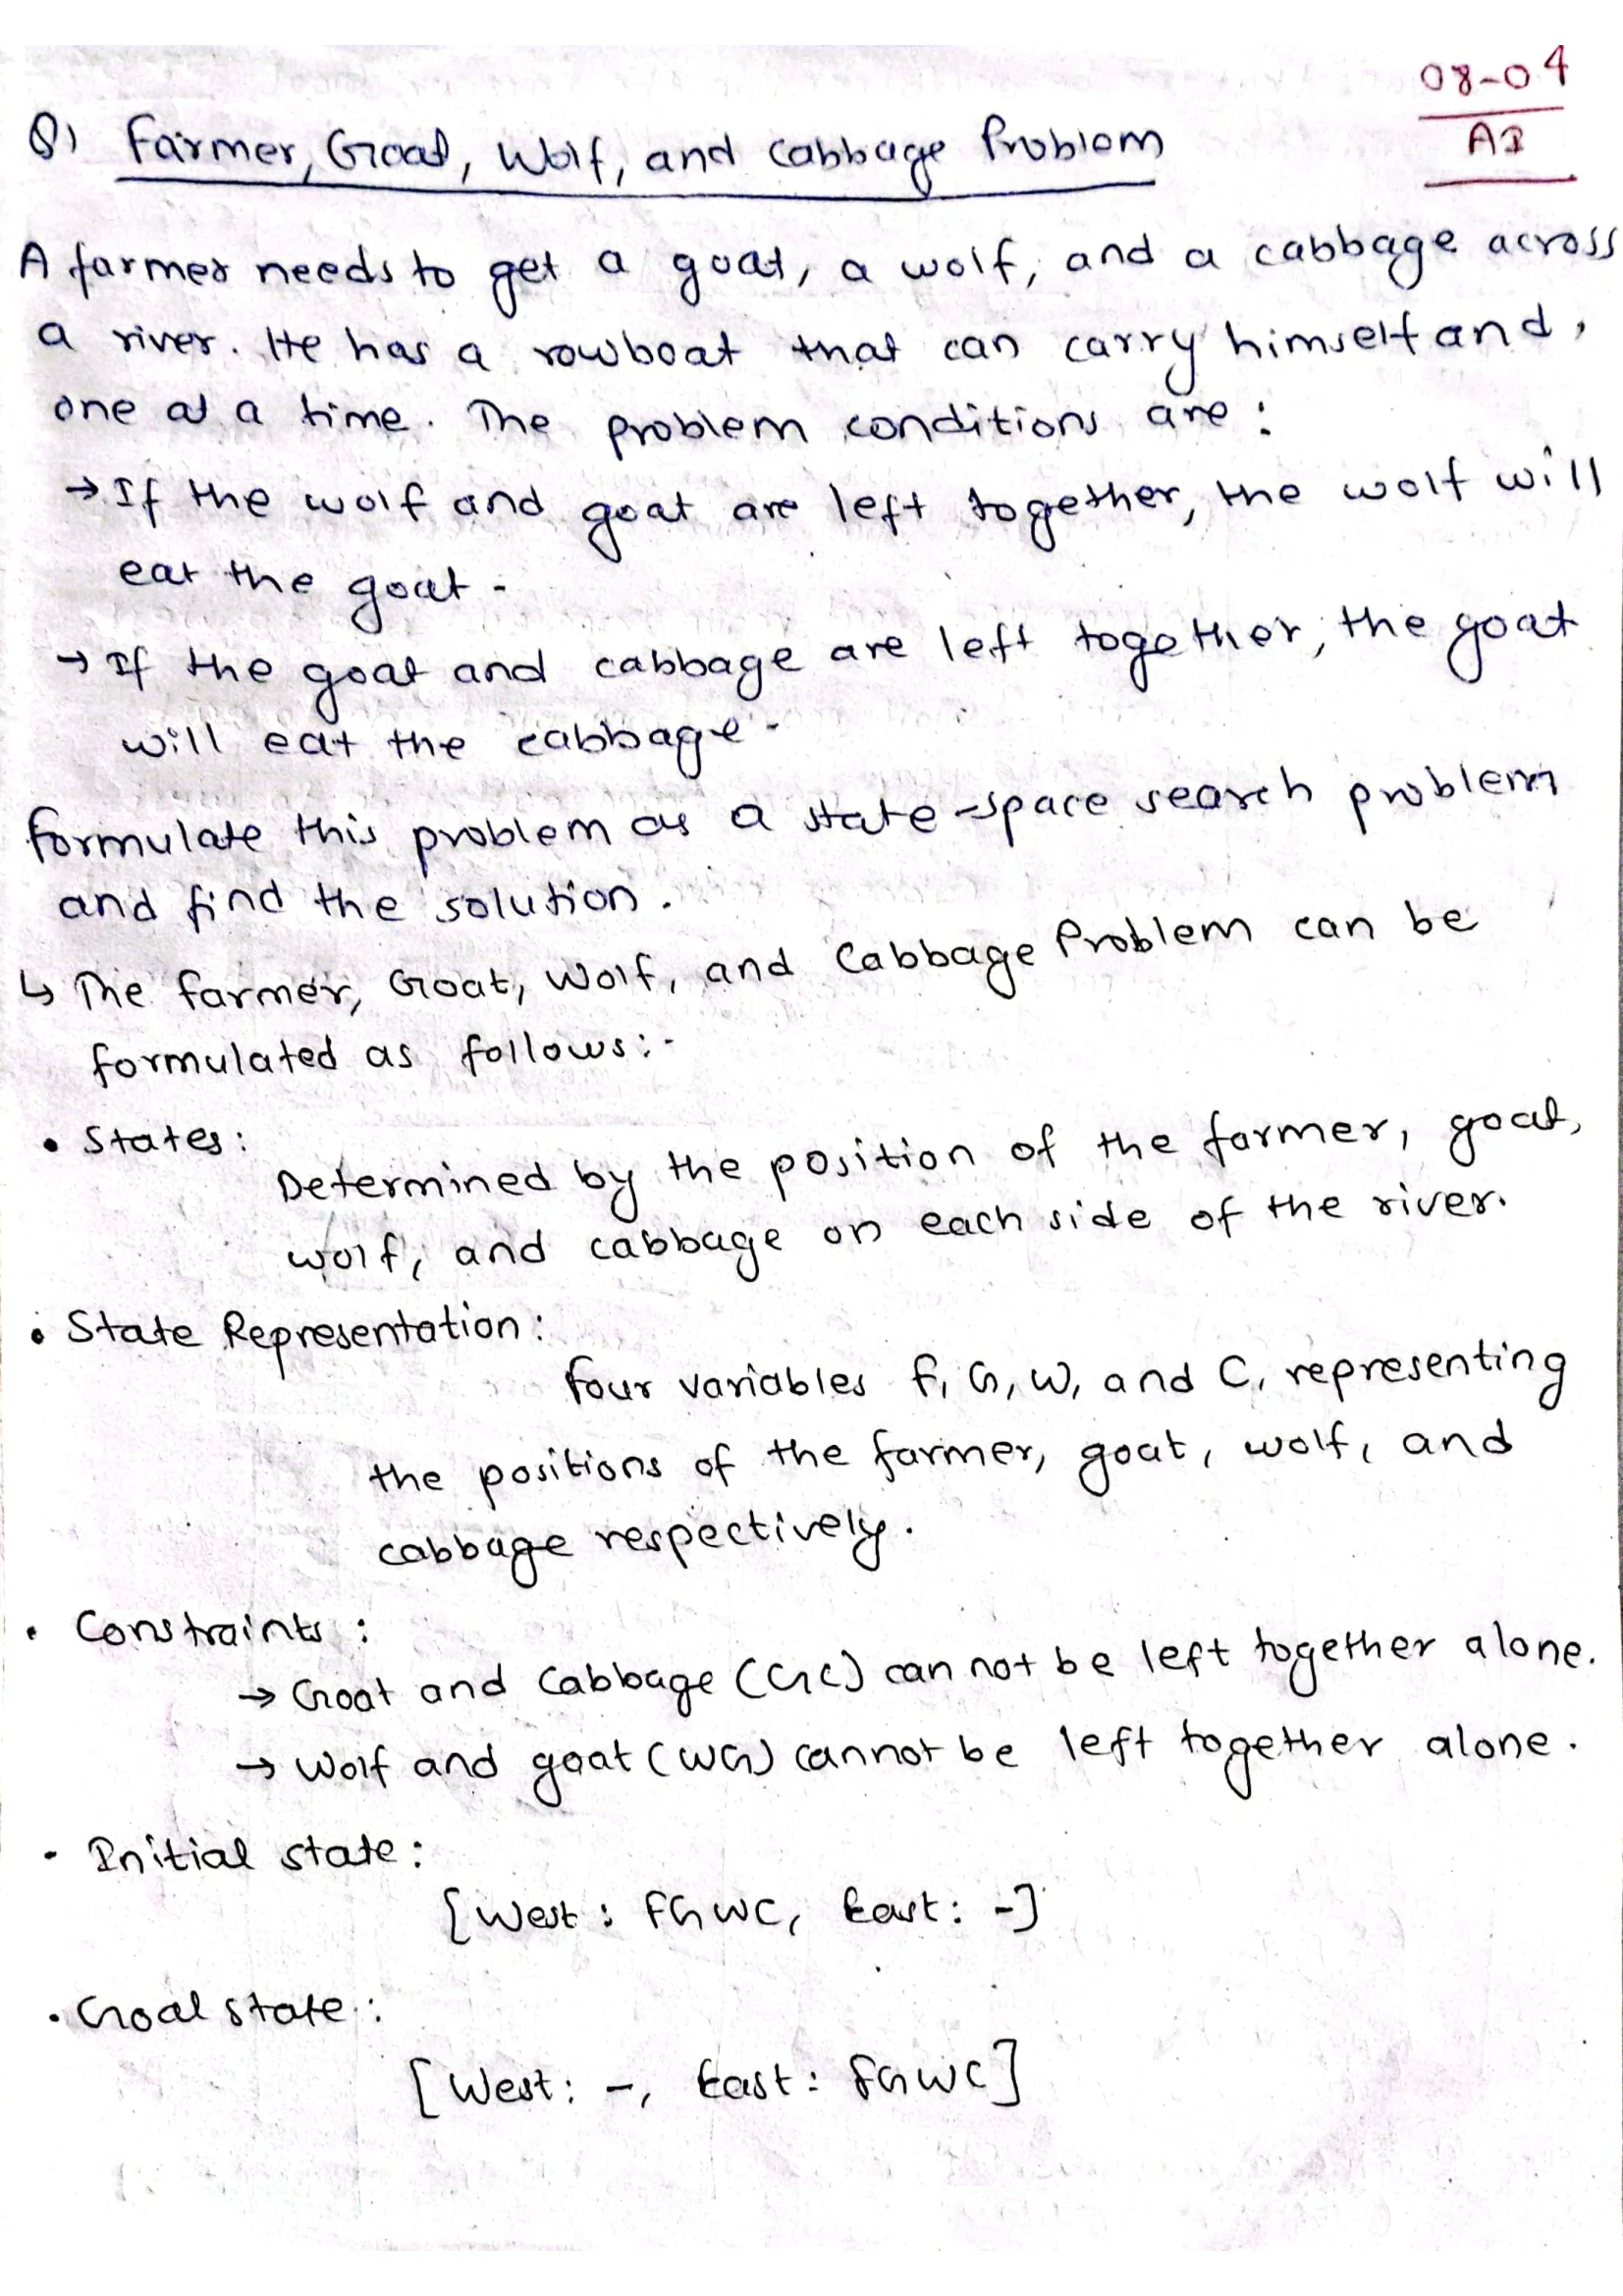 08-04
AI
Q) Farmer, Goat, Wolf, and Cabbage Problem
A farmer needs to get a goat, a wolf, and a cabbage across
a river. He has a rowboat that can carry himself and,
one at a time. The problem conditions are:
→ If the wolf and goat are left together, the wolf will
eat the goat.
→ If the goat and cabbage are left together, the goat
will eat the cabbage.
formulate this problem as a state-space search problem
and find the solution.
↳ The farmer, Goat, Wolf, and Cabbage Problem can be
formulated as follows:-
• States:
Determined by the position of the farmer, goat,
wolf, and cabbage on each side of the river.
• State Representation:
Four variables F, G, W, and C, representing
the positions of the farmer, goat, wolf, and
cabbage respectively.
• Constraints:
→ Goat and Cabbage (GC) can not be left together alone.
→ Wolf and goat (WG) cannot be left together alone.
• Initial state:
[West: FGWC, East: -]
• Goal state:
[West: -, East: FGWC]